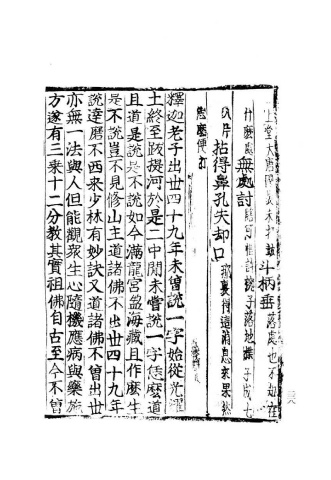 斗柄垂落處也不知在
什麼處無處討
八片拈得鼻孔失却口那裏得這消息來果然
恁麼便打
釋迦老子出世四十九年未曾說一字始從光耀
土終至跋提河於是二中間未嘗說一字恁麼道
且道是說是不說如今滿龍宮盈海藏且作麼生
是不說豈不見修山主道諸佛不出世四十九年
說達磨不西來少林有妙訣又道諸佛不曾出世
亦無一法與人但能觀衆生心隨機應病與藥施
方遂有三乘十二分教其實祖佛自古至今不曾